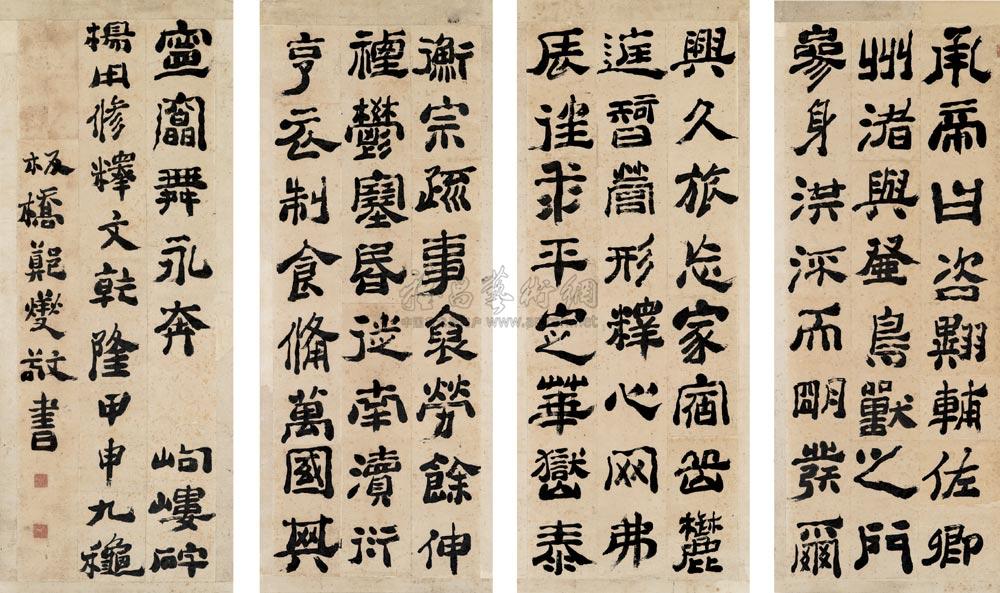 承帝曰咨翼輔佐卿
州渚與登鳥獸之門
參身洪流而明發爾
興久旅忘家宿岳麓
庭智營形釋心网弗
辰往求平定華嶽泰
衡宗疏事裒勞餘伸
禋鬱塞昏徙南瀆衍
亨衣制食備萬國其
寧竄舞永奔 岣嶁碑
楊用修釋文乾隆甲申九穐
板橋鄭燮敬書
雅昌藝術網